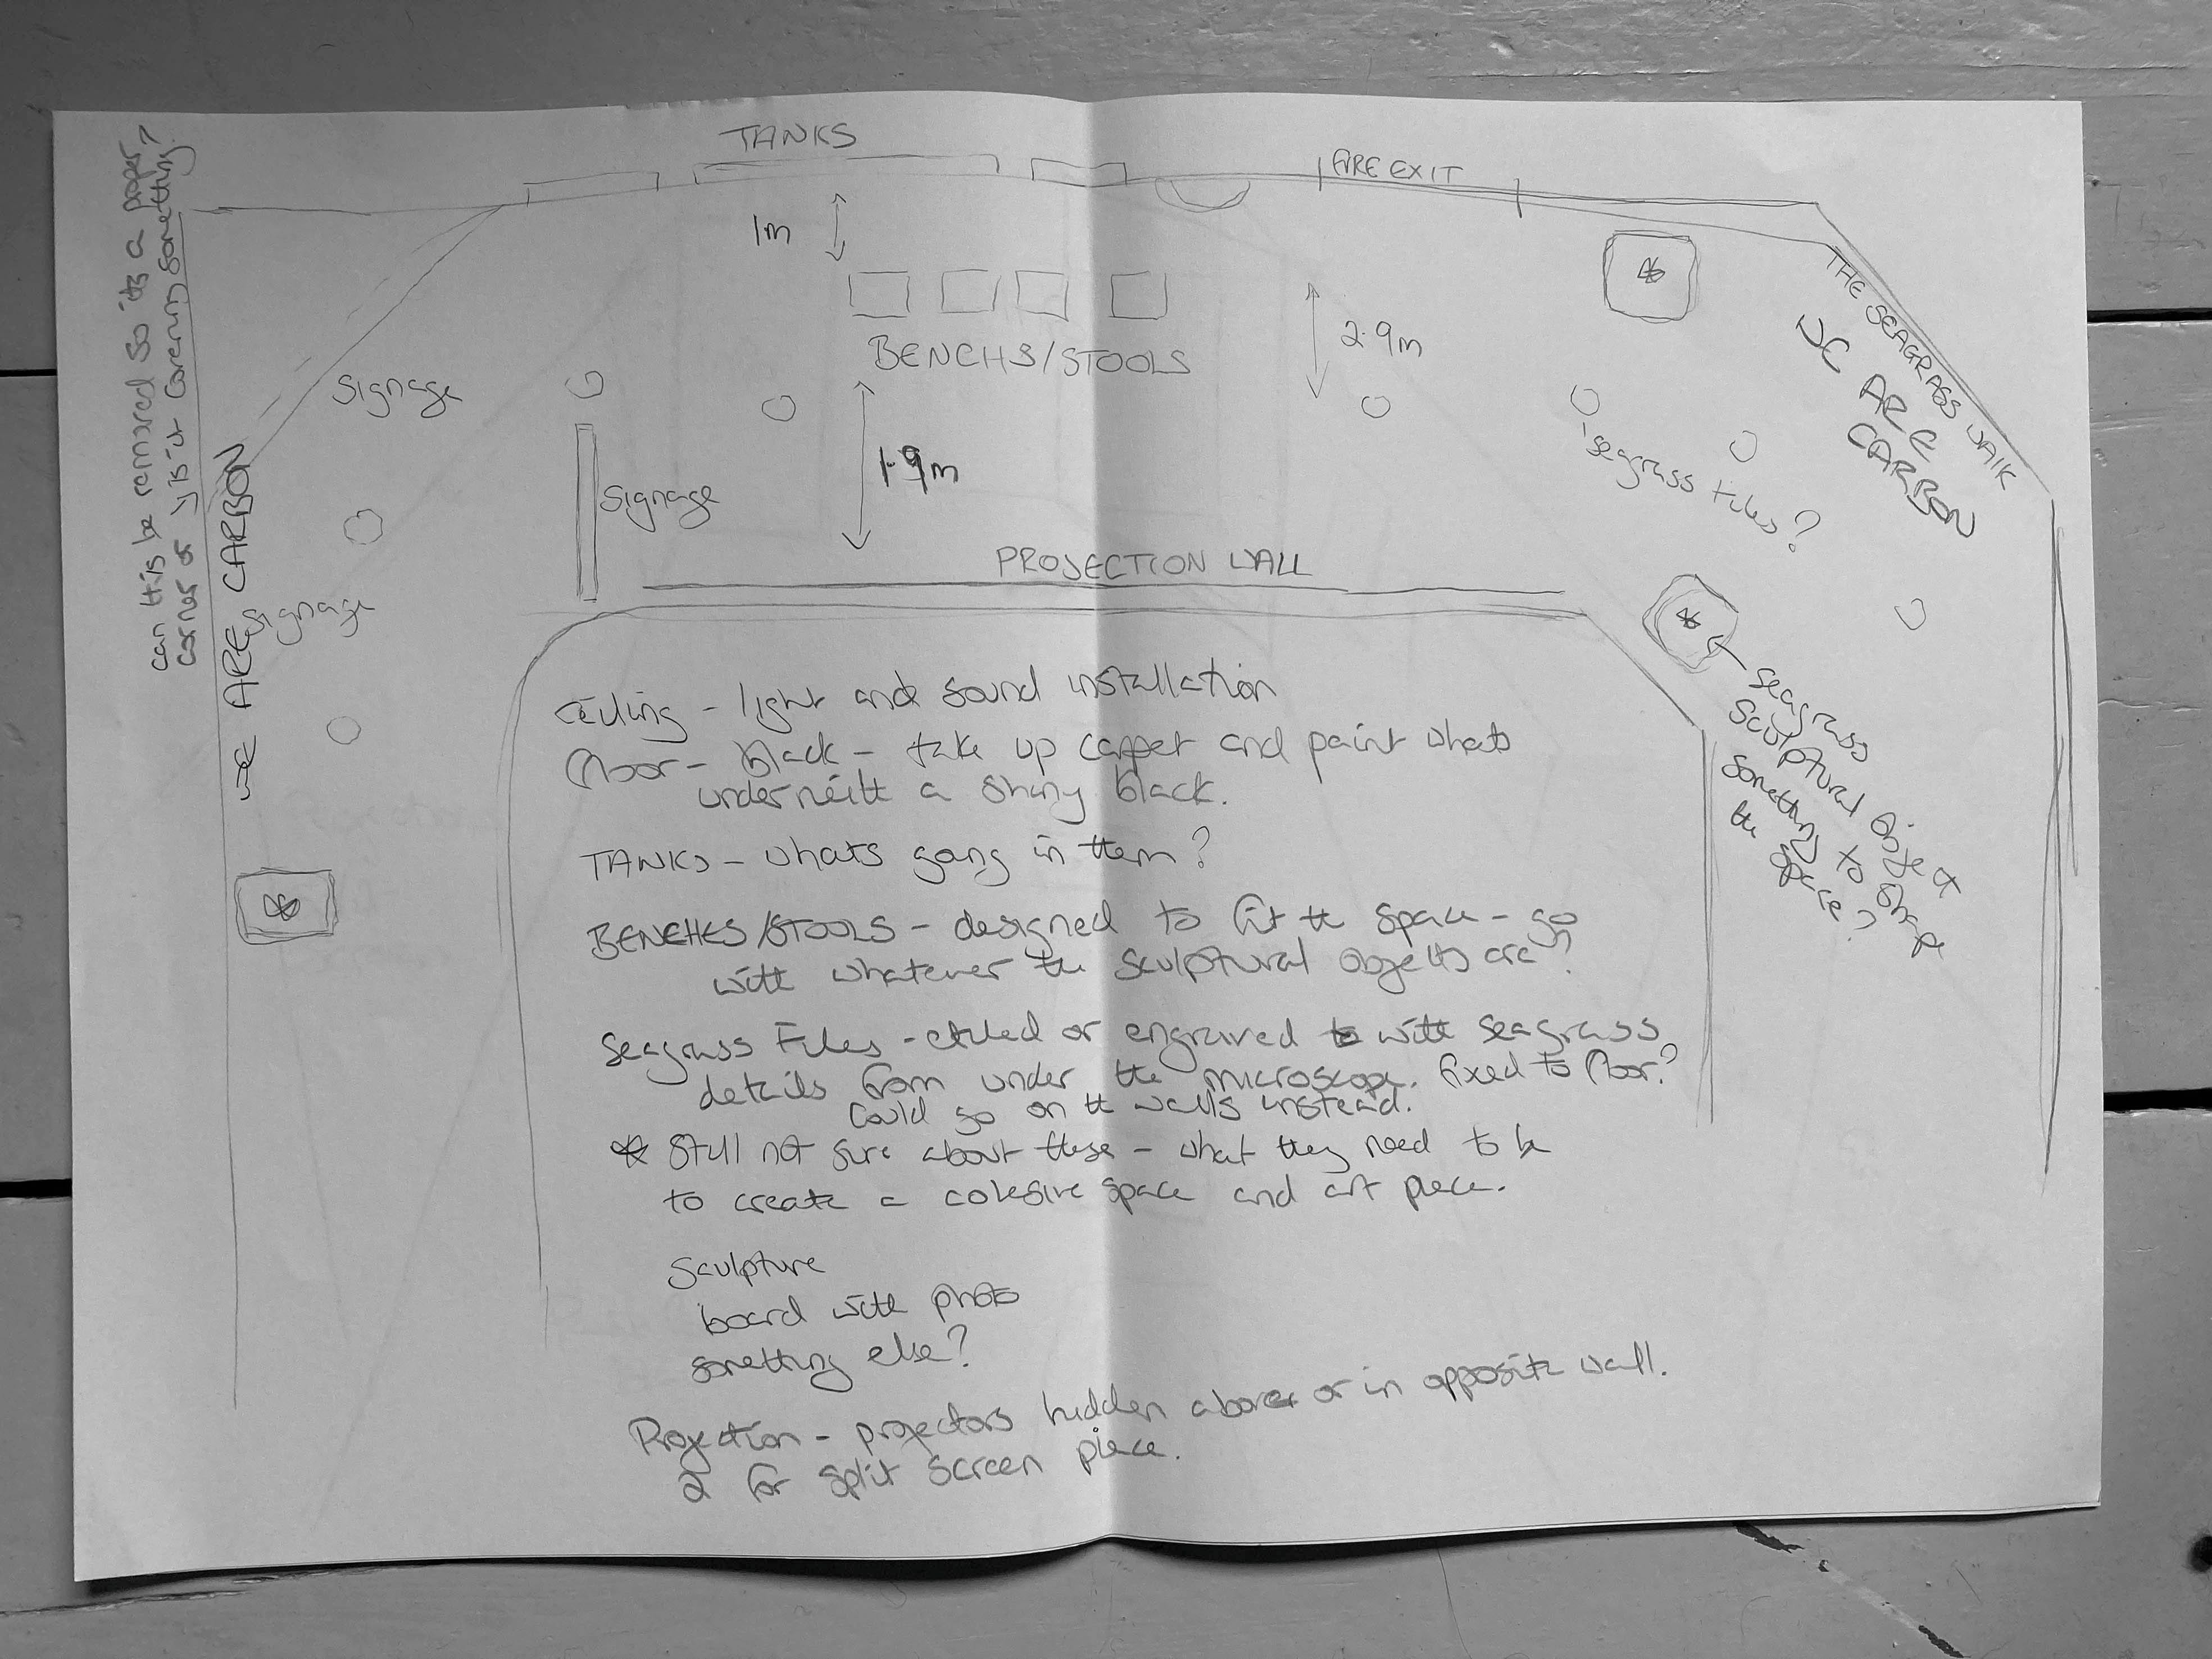 TANKS
FIRE EXIT
can this be removed so its a proper
corner or is it covering something?
1m
THE SEAGRASS WALK
WE ARE
CARBON
BENCHS/STOOLS
2.9m
signage
1.9m
signage
segrass tiles?
PROJECTION WALL
WE ARE CARBON
signage
seagrass
sculptural object
something to shape
the space?
ceiling - light and sound installation
floor - black - take up carpet and paint whats
underneith a shiny black.
TANKS - whats going in them?
BENCHES/STOOLS - designed to fit the space - go
with whatever the sculptural objects are?
Seagrass Tiles - etched or engraved to with seagrass
details from under the microscope. fixed to floor?
Could go on the walls instead.
* Still not sure about these - what they need to be
to create a cohesive space and art piece.
Sculpture
board with photo
something else?
Projection - projectors hidden above or in opposite wall.
2 for split screen piece.